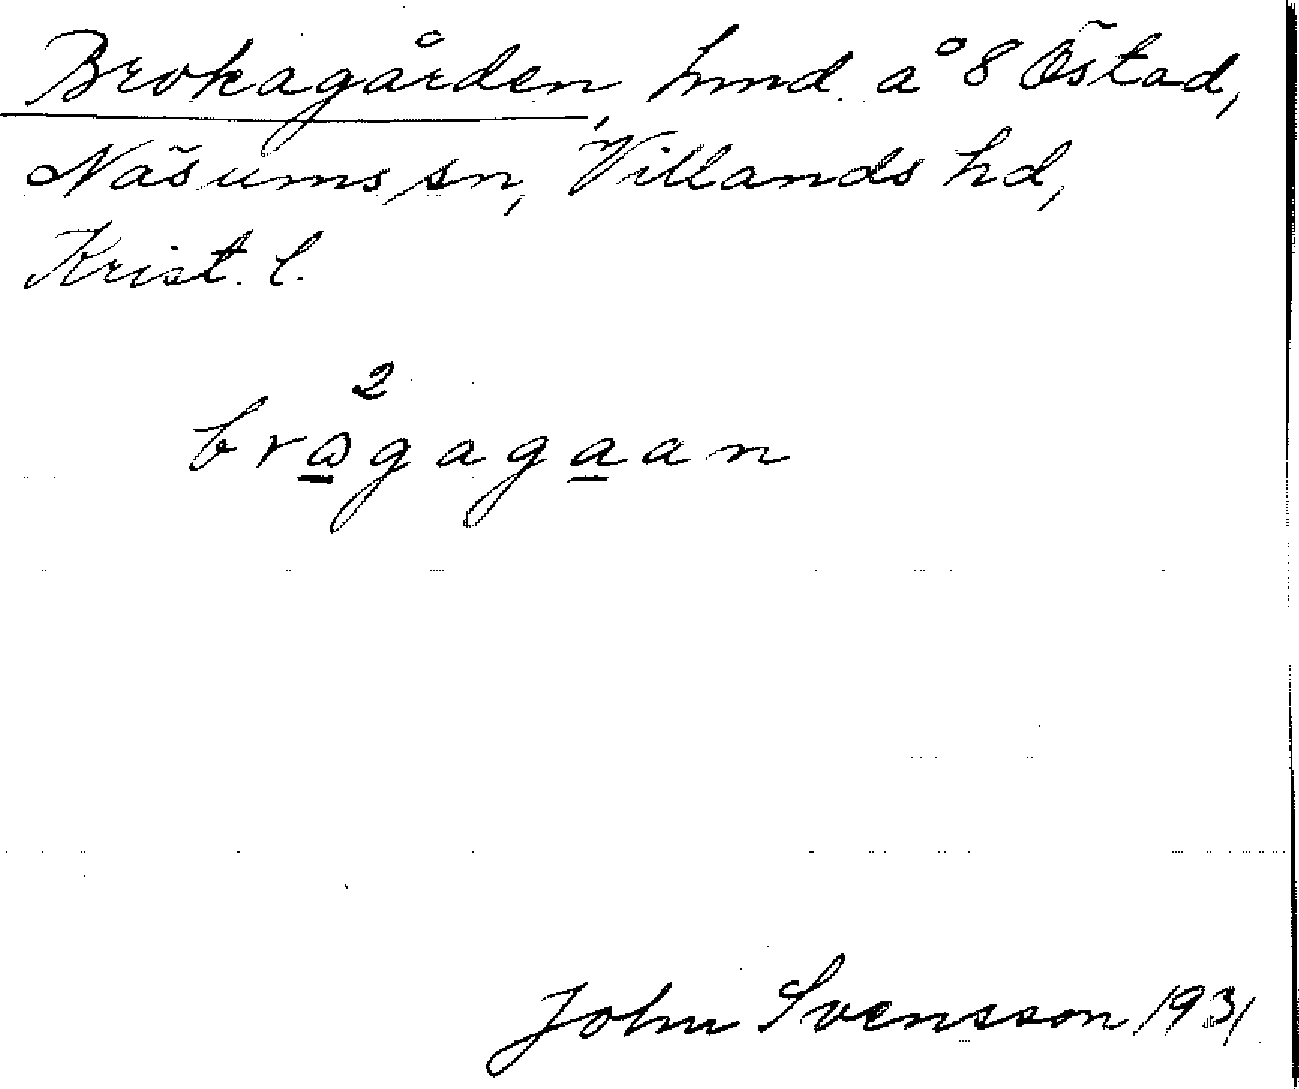 Brokagården, hmd. å 8 Östad,
Näsums sn, Villands hd,
Krist. l.
2
brågagaan
John Svensson 1931